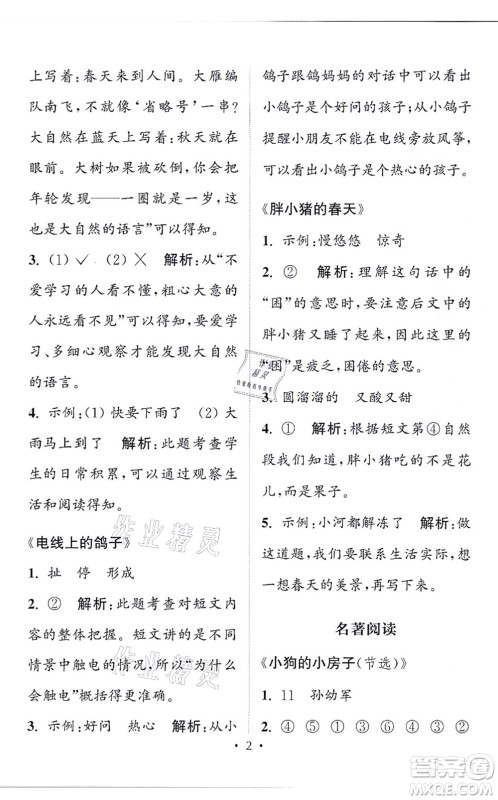 上写着：春天来到人间。大雁编
队南飞，不就像‘省略号’一串？
大自然在蓝天上写着：秋天就在
眼前。大树如果被砍倒，你会把
年轮发现——一圈就是一岁，这
又是大自然的语言”可得知。
3. (1)✓ (2)✕ 解析：从“不
爱学习的人看不懂，粗心大意的
人永远看不见”可得知，只有爱学
习、多细心观察才能发现大自然
的语言。
4. 示例：(1)快要下雨了 (2)大
雨马上到了 解析：此题考查学
生的日常积累，可以通过观察生
活和阅读得知。
《电线上的鸽子》
1. 扯 停 形成
2. ② 解析：此题考查对短文内
容的整体把握。短文讲的是不同
情景中触电的情况，所以“为什么
会触电”概括得最准确。
3. 示例：好问 热心 解析：从小
鸽子跟鸽妈妈的对话中可以看出
小鸽子是个好问的孩子；从小鸽子
提醒小朋友不在电线旁放风筝，
可以看出小鸽子是个热心的孩子。
《胖小猪的春天》
1. 示例：慢悠悠 惊奇
2. ② 解析：理解这句话中的
“困”的意思时，要关注后文中的
胖小猪又睡了起来，因此可知
“困”是疲乏、困倦的意思。
3. 圆溜溜的 又酸又甜
4. ① 解析：根据短文第④自然
段我们知道，胖小猪吃的不是花
儿，而是果子。
5. 示例：小河都解冻了 解析：做
这道题，我们要联系生活实际，想
一想春天的美景，再进行填写。
名著阅读
《小狗的小房子(节选)》
1. 11 孙幼军
2. ④ ⑤ ① ③ ⑥ ⑦ ②
• 2 •
作业精灵
作业精灵
作业
精灵
答案圈
MXQE.COM